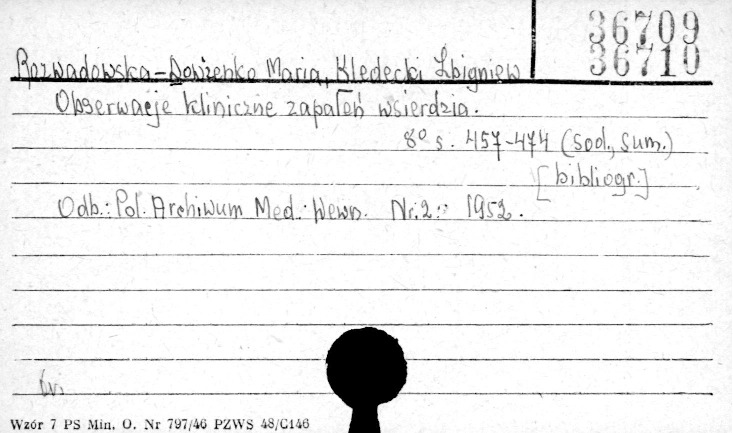 36709
36710
Rozwadowska-Dowżenko Maria, Kledecki Zbigniew
Obserwacje kliniczne zapaleń wsierdzia.
8° s. 457-474 (Sod., Sum.)
[bibliogr.]
Odb.: Pol. Archiwum Med. Wewn. Nr. 2. 1952.
Wzór 7 PS Min. O. Nr 797/46 PZWS 48/C146